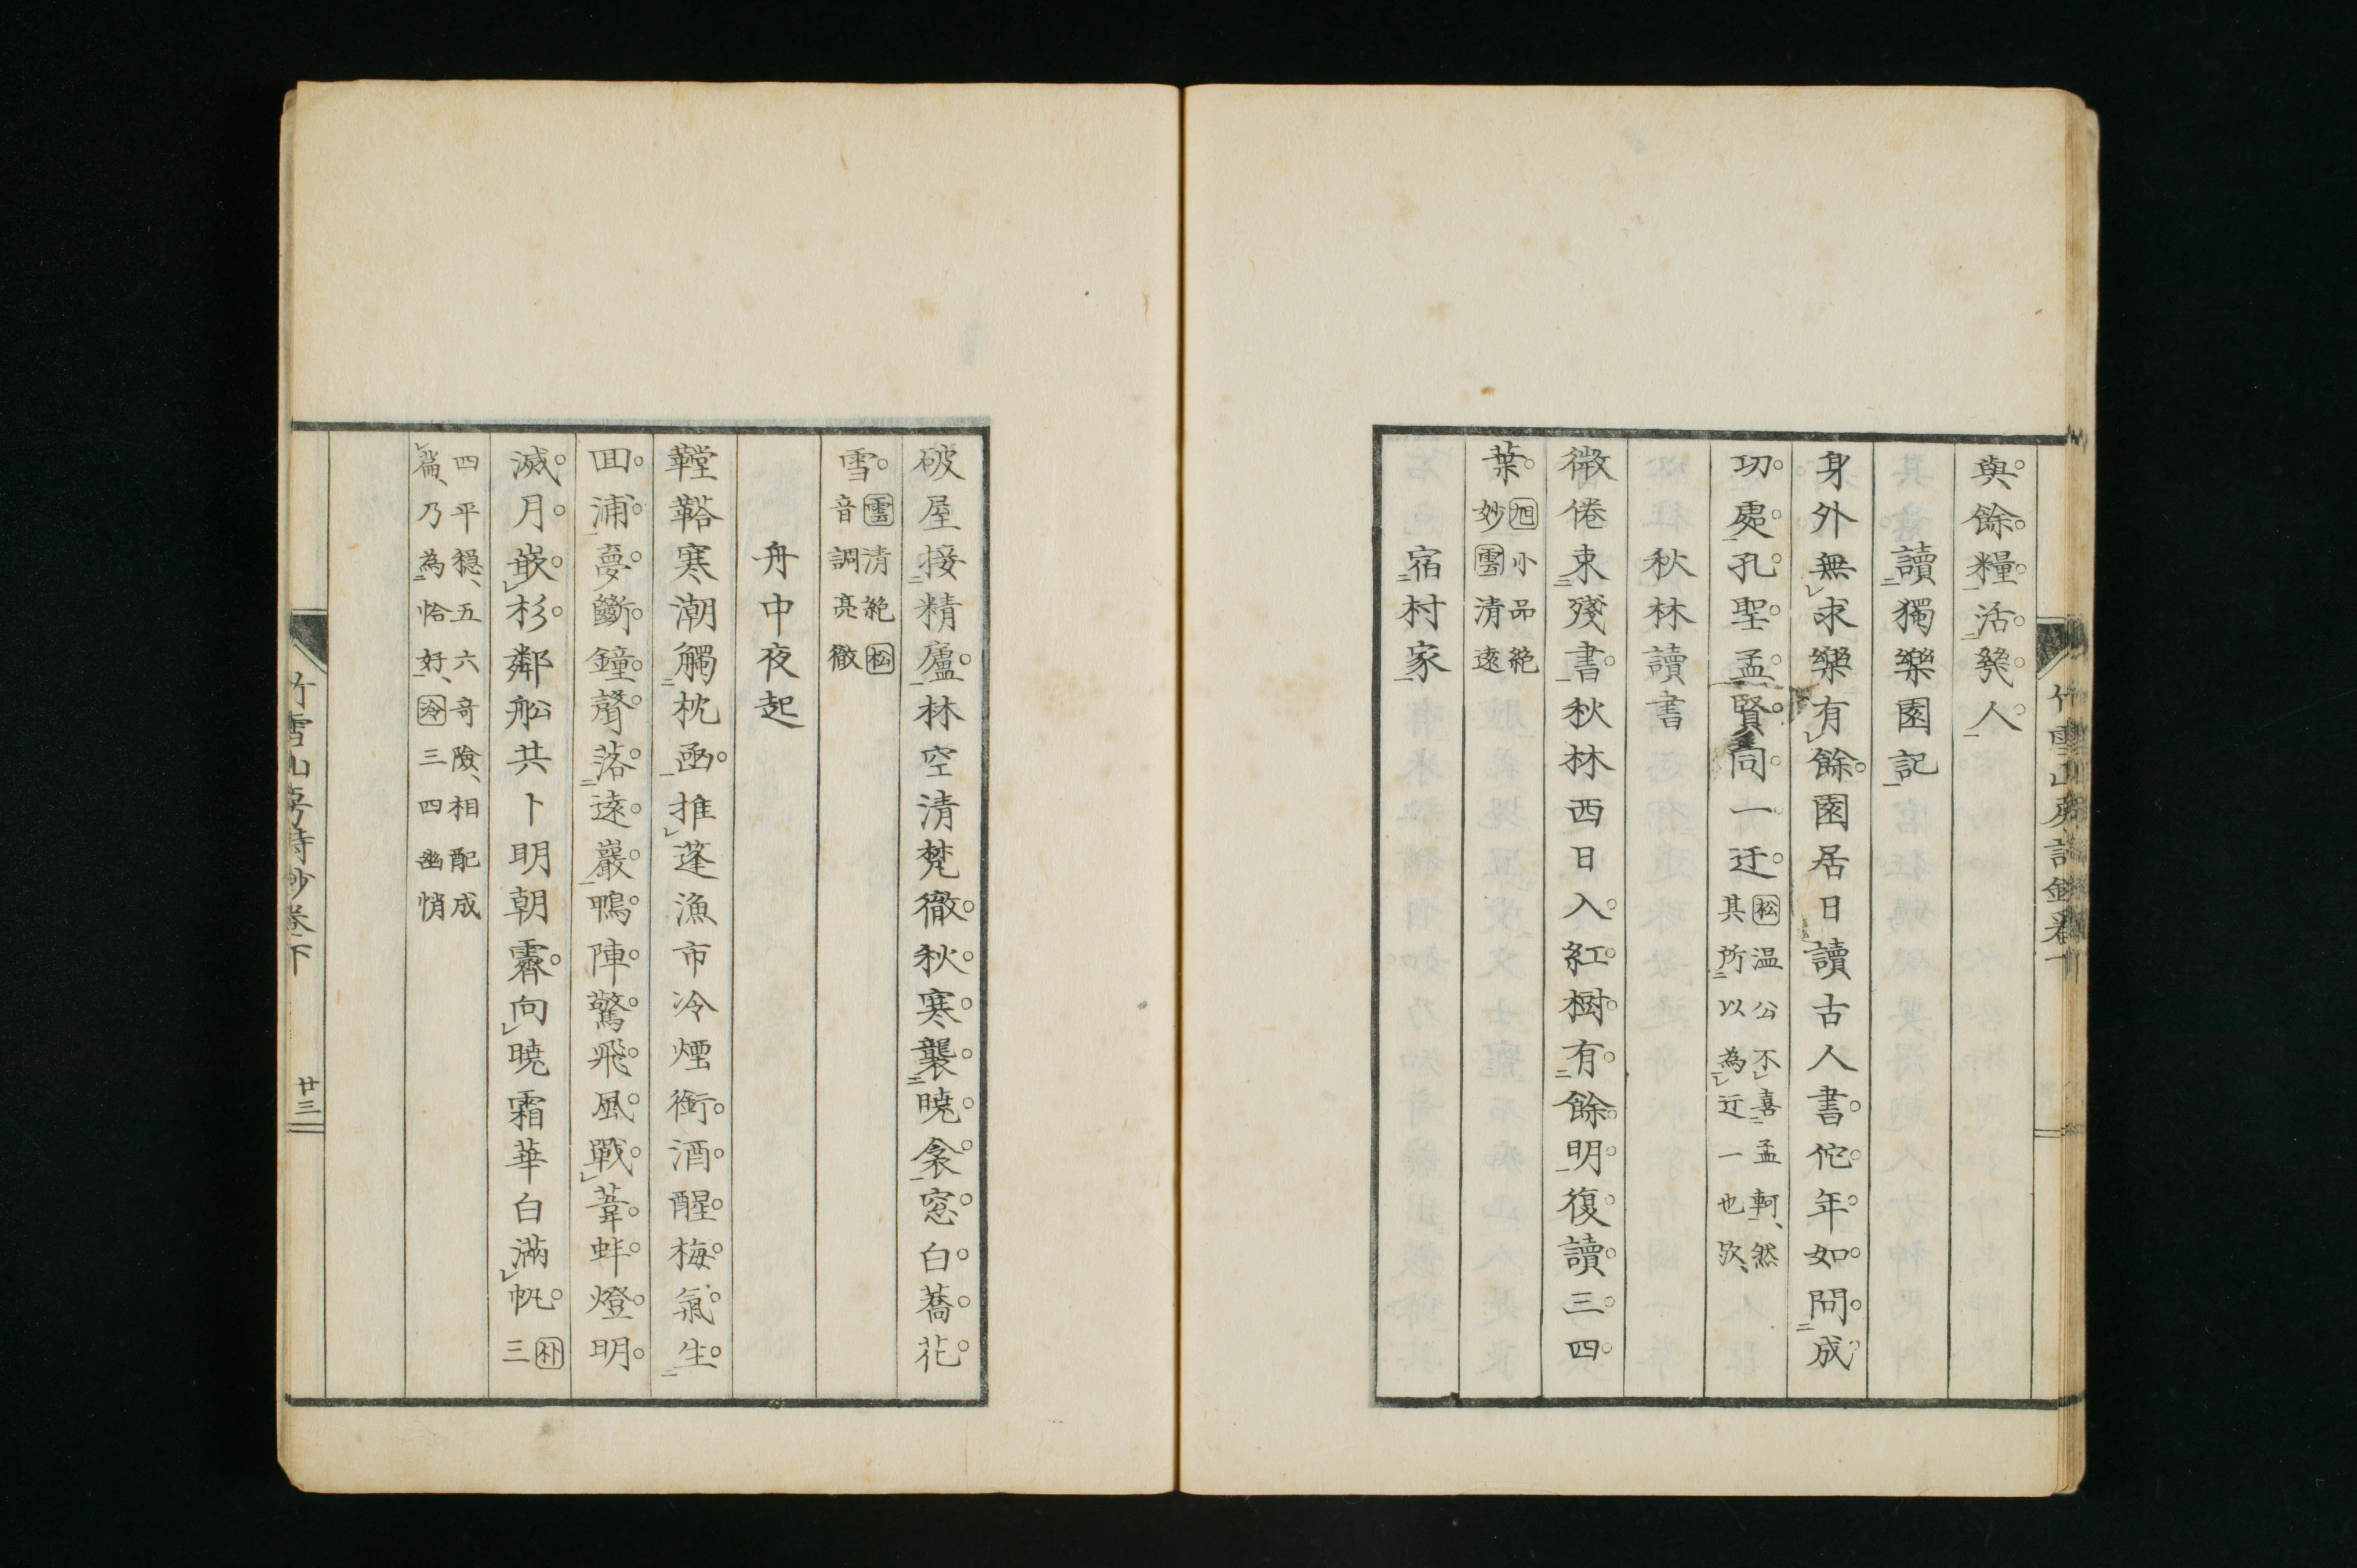 與餘糧活癸人
讀獨樂園記
身外無求樂有餘園居日讀古人書佗年如問成
功處孔聖孟賢同一迂
松温公不喜孟軻、然
其所以為迂一也歟、
秋林讀書
微倦束殘書秋林西日入紅樹有餘明復讀三四
葉
旭小品絶
妙雲清遠
宿村家
破屋接精廬林空清梵徹秋寒襲曉衾窓白蕎花
雪
雲清絶松
音調亮徹
舟中夜起
鞺鞳寒潮觸枕函推蓬漁市冷煙銜酒醒梅氣生
回浦夢斷鐘聲落遠巖鴨陣驚飛風戰葦蚌燈明
滅月嵌杉鄰舩共卜明朝霽向曉霜華白滿帆
朴三
四平穏、五六奇險、相配成
篇、乃為恰好、冷三四幽悄
竹雪山房詩鈔卷下
廿三